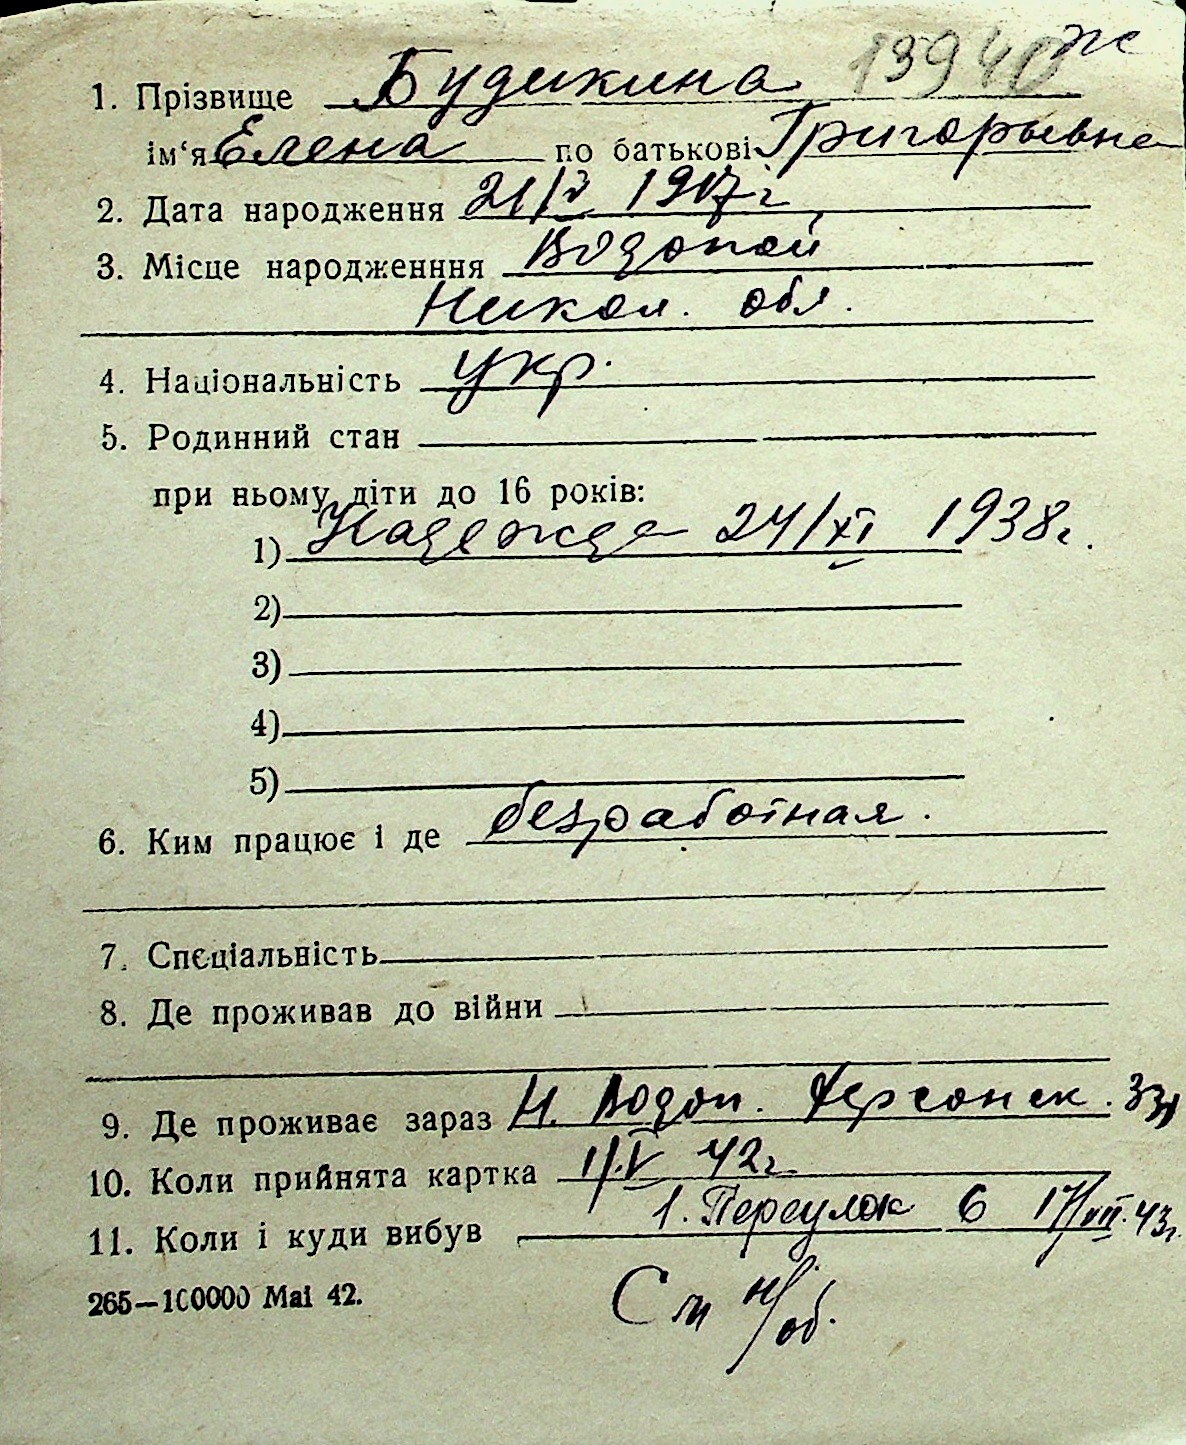 13940 ж
1. Прізвище Будыкина
ім‘я Елена по батькові Григорьевна
2. Дата народження 21/V 1917 г.
3. Місце народженння Водопой
Никол. обл.
4. Національність укр.
5. Родинний стан
при ньому діти до 16 років:
1) Надежда 24/XI 1938г.
2)
3)
4)
5)
6. Ким працює і де безработная.
7. Спєціальність
8. Де проживав до війни
9. Де проживає зараз Н. Водоп. Херсонск. 33
10. Коли прийнята картка 1/V 42г.
11. Коли і куди вибув 1. Переулок 6 17/VII. 43г.
265—100000 Mai 42.
См н/об.